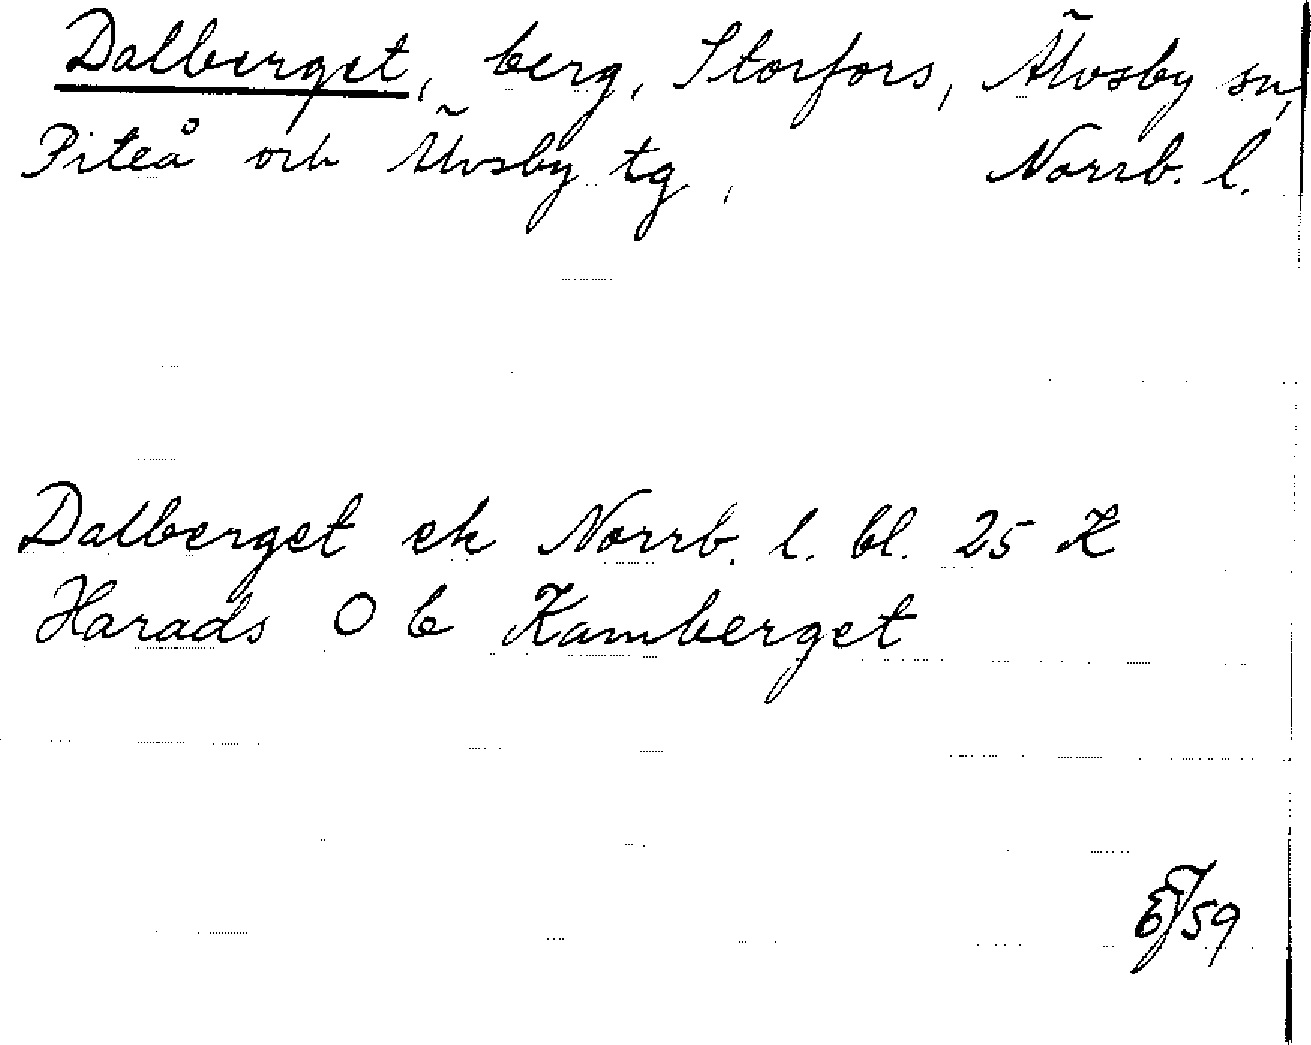 Dalberget, berg, Storfors, Älvsby sn,
Piteå och Älvsby tg, Norrb. l.
Dalberget ek Norrb. l. bl. 25 K
Harads O b Kamberget
/59